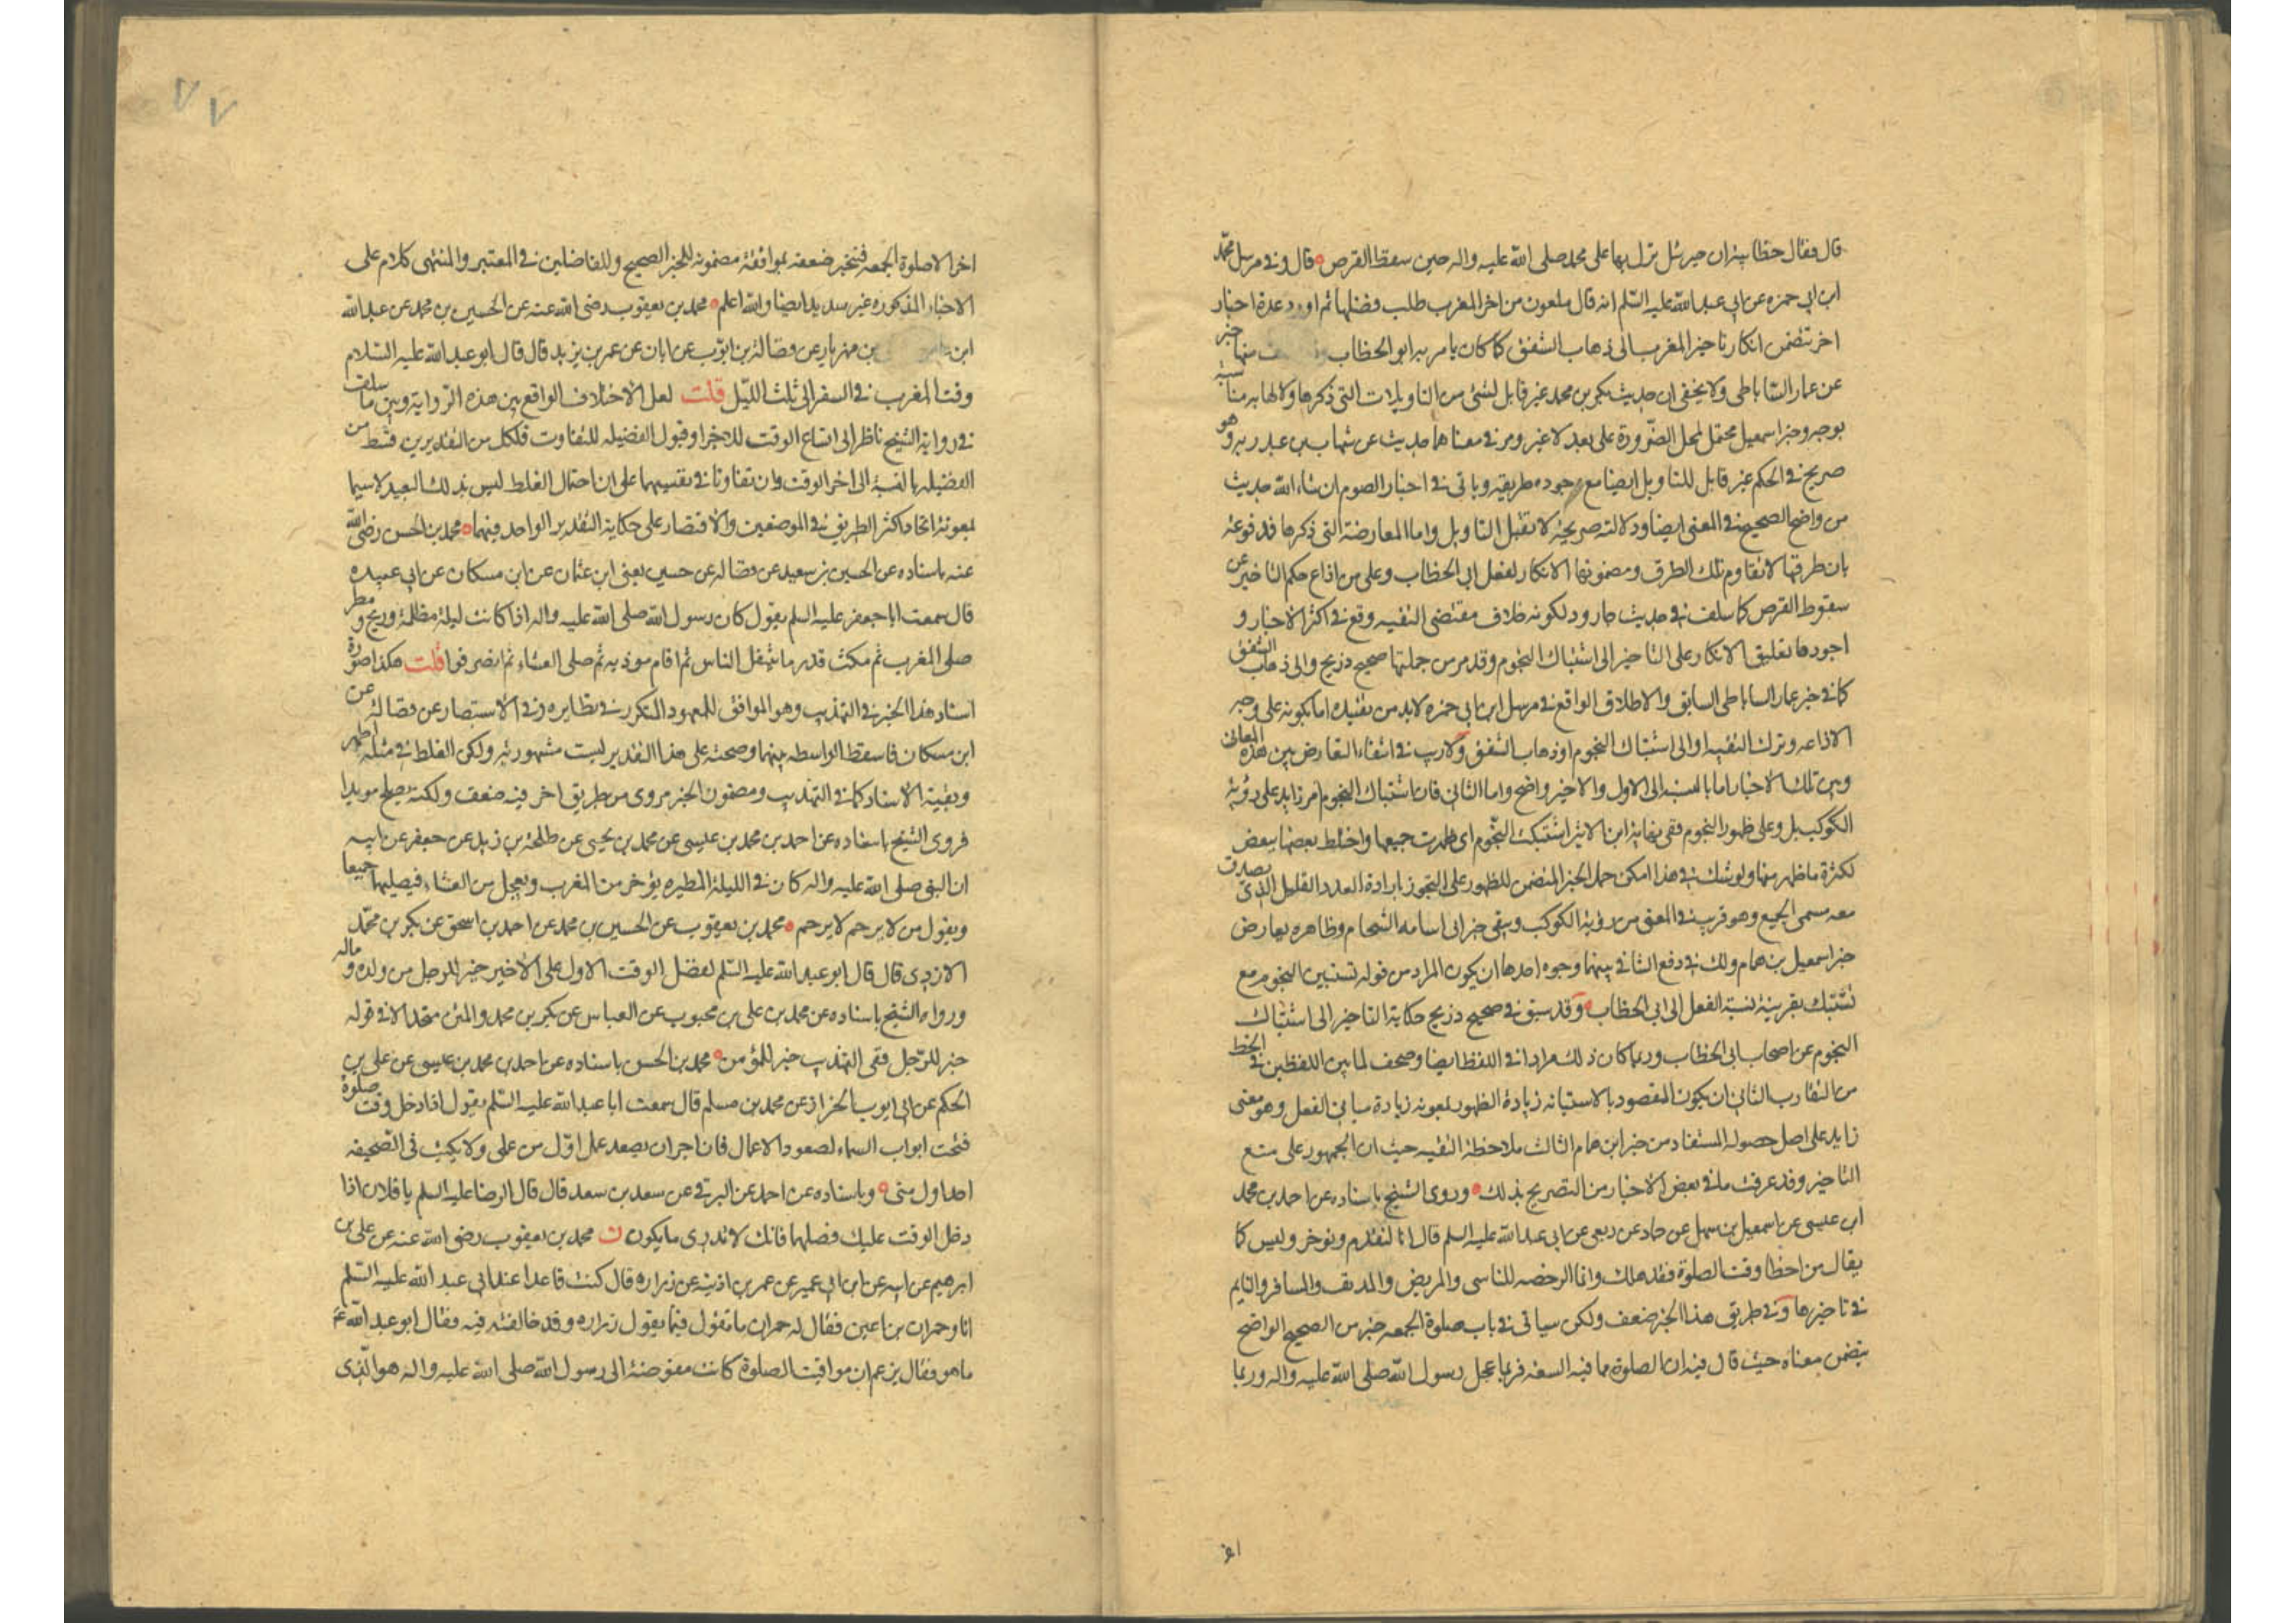 قال فقال خطابية ان جبرئيل نزل بها على محمد صلى الله عليه واله حين سقط القرص قال وفي مرسل محمد
ابن ابي حمزه عن ابي عبد الله عليه السلم انه قال ملعون من اخر المغرب طلب فضلها ثم اورد عدة اخبار
اخر تتضمن انكار تاخير المغرب الى ذهاب الشفق كما كان يامر به ابو الخطاب منها خبر
عن عمار الساباطي ولا يخفى ان حديث بكر بن محمد غير قابل لشئ من التاويلات التي ذكرها ولا لها به مناسبة
بوجه وخبر اسمعيل محتمل لمحل الضرورة على بعد لا غير ومر في معناهما حديث عن شهاب بن عبد ربه وهو
صريح في الحكم غير قابل للتاويل ايضا مع جوده طريقه وياتي في اخبار الصوم ان شاء الله حديث
من واضح الصحيح في المعنى ايضا ودلالته صريحة لا تقبل التاويل واما المعارضة التي ذكرها فمدفوعة
بان طرقها لا تقاوم تلك الطرق ومضمونها الانكار لفعل ابي الخطاب وعلى من اذاع حكم التاخير عن
سقوط القرص كما سلف في حديث جارود لكونه خلاف مقتضى التقيه وقع في اكثر الاخبار و
اجودها تعليق الانكار على التاخير الى اشتباك النجوم وقد مر من جملتها صحيح ذريح والى ذهاب الشفق
كما في خبر عمار الساباطي السابق والاطلاق الواقع في مرسل ابن ابي حمزه لابد من تقييده اما بكونه على وجه
الاذاعه وترك التقيه او الى اشتباك النجوم او ذهاب الشفق ولا ريب في انتفاء التعارض بين هذه المعاني
وبين تلك الاخبار اما بالنسبة الى الاول والاخير واضح واما الثاني فان اشتباك النجوم امر زايد على رؤية
الكوكب بل وعلى ظهور النجوم ففي نهاية ابن الاثير اشتبكت النجوم اى ظهرت جميعها واختلط بعضها ببعض
لكثرة ما ظهر منها ولو شك في هذا امكن حمل الخبر المتضمن للظهور على التجوز بارادة العدد القليل الذى يصدق
معه مسمى الجمع وهو قريب في المعنى من رؤية الكوكب ويبقى خبر ابى اسامه الشحام وظاهره يعارض
خبر اسمعيل بن همام ولك في دفع التنافي بينهما وجوه احدها ان يكون المراد من قوله تستبين النجوم مع
تشتبك بقرينة نسبة الفعل الى ابي الخطاب وقد سبق في صحيح ذريح حكاية التاخير الى اشتباك
النجوم عن اصحاب ابى الخطاب وربما كان ذلك مرادا في اللفظ ايضا وصحف لما بين اللفظين في الخط
من التقارب الثاني ان يكون المقصود بالاستبانه زيادة الظهور بمعونه زيادة مباني الفعل وهو معنى
زايد على اصل حصوله المستفاد من خبر ابن همام الثالث ملاحظة التقيه حيث ان الجمهور على منع
التاخير وقد عرفت ما في بعض الاخبار من التصريح بذلك وروى الشيخ باسناده عن احمد بن محمد
ابن عيسى عن اسمعيل بن سهل عن حماد عن ربعي عن ابي عبد الله عليه السلم قال انا لنقدم ونوخر وليس كما
يقال من اخطا وقت الصلوة فقد هلك وانما الرخصه للناسى والمريض والمدنف والمسافر والنايم
في تاخيرها وفي طريق هذا الخبر ضعف ولكن سياتى في باب صلوة الجمعه خبر من الصحيح الواضح
يتضمن معناه حيث قال فيه ان الصلوة مما فيه السعه فربما عجل رسول الله صلى الله عليه واله وربما
اخر
٧٧
اخر الا صلوة الجمعه فينجبر ضعفه بموافقة مضمونه للخبر الصحيح وللفاضلين في المعتبر والمنتهى كلام على
الاخبار المذكوره غير سديد ايضا والله اعلم محمد بن يعقوب رضى الله عنه عن الحسين بن محمد عن عبد الله
ابن بن مهزيار عن فضالة بن ايوب عن ابان عن عمر بن يزيد قال قال ابو عبد الله عليه السلام
وقت المغرب في السفر الى ثلث الليل قلت لعل الاختلاف الواقع بين هذه الرواية وبين ما سلف
في رواية الشيخ ناظر الى اتساع الوقت للاجزا وقبول الفضيله للتفاوت فلكل من التقديرين قسط من
الفضيله بالنسبة الى اخر الوقت وان تفاوتا في نفسيهما على ان احتمال الغلط ليس بذلك البعيد لا سيما
بمعونة اتحاد اكثر الطريق في الموضعين والاقتصار على حكاية التقدير الواحد فيهما محمد بن الحسن رضى الله
عنه باسناده عن الحسين بن سعيد عن فضاله عن حسين يعنى ابن عثمان عن ابن مسكان عن ابي عبيده
قال سمعت ابا جعفر عليه السلم يقول كان رسول الله صلى الله عليه واله اذا كانت ليلة مظلمة وريح ومطر
صلى المغرب ثم مكث قدر ما يتنفل الناس ثم اقام موذنه ثم صلى العشاء ثم انصرفوا قلت هكذا صورة
اسناد هذا الخبر في التهذيب وهو الموافق للمعهود المتكرر في نظايره وفي الاستبصار عن فضالة عن
ابن مسكان فاسقط الواسطه بينهما وصحته على هذا التقدير ليست مشهوريه ولكن الغلط في مثله اظهر
وبقية الاسناد كما في التهذيب ومضمون الخبر مروى من طريق اخر فيه ضعف ولكنه يصلح مويدا
فروى الشيخ باسناده عن احمد بن محمد بن عيسى عن محمد بن يحيى عن طلحة بن زيد عن جعفر عن ابيه
ان النبي صلى الله عليه واله كان في الليلة المطيره يؤخر من المغرب ويعجل من العشاء فيصليهما جميعا
ويقول من لا يرحم لا يرحم محمد بن يعقوب عن الحسين بن محمد عن احمد بن اسحق عن بكر بن محمد
الازدى قال قال ابو عبد الله عليه السلم لفضل الوقت الاول على الاخير خير للرجل من ولده وماله
ورواه الشيخ باسناده عن محمد بن على بن محبوب عن العباس عن بكر بن محمد والمتن متحد الا في قوله
خير للرجل ففى التهذيب خير للمؤمن محمد بن الحسن باسناده عن احمد بن محمد بن عيسى عن على بن
الحكم عن ابي ايوب الخزاز عن محمد بن مسلم قال سمعت ابا عبد الله عليه السلم يقول اذا دخل وقت صلوة
فتحت ابواب السماء لصعود الاعمال فما احب ان يصعد عمل اول من عملى ولا يكتب في الصحيفه
احد اول منى وباسناده عن احمد عن البرقي عن سعد بن سعد قال قال الرضا عليه السلم يا فلان اذا
دخل الوقت عليك فصلها فانك لا تدرى ما يكون ن محمد بن يعقوب رضى الله عنه عن على بن
ابرهيم عن ابيه عن ابن ابي عمير عن عمر بن اذينه عن زراره قال كنت قاعدا عند ابى عبد الله عليه السلم
انا وحمران بن اعين فقال له حمران ما تقول فيما يقول زراره وقد خالفته فيه فقال ابو عبد الله ع
ما هو فقال يزعم ان مواقيت الصلوة كانت مفوضة الى رسول الله صلى الله عليه واله هو الذى